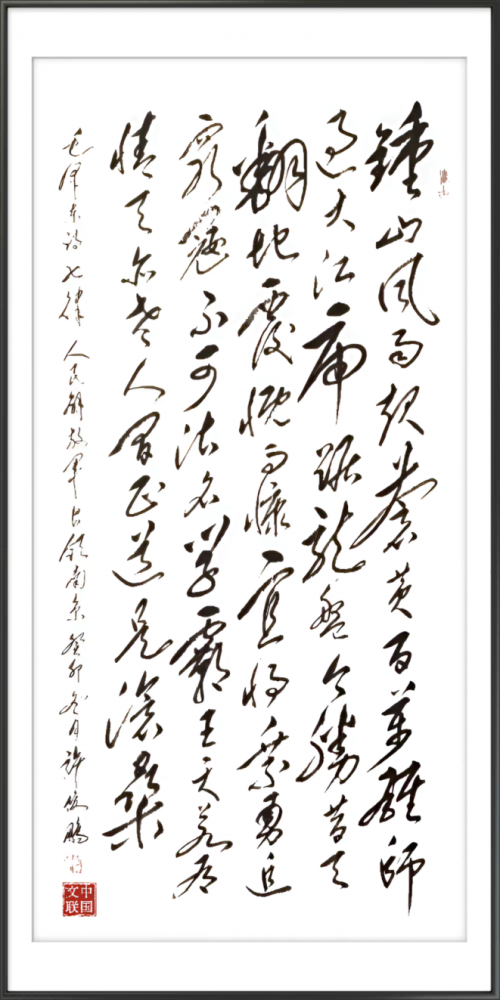 鍾山風雨起蒼黃百萬雄師
過大江虎踞龍盤今勝昔天
翻地覆慨而慷宜將剩勇追
窮寇不可沽名學霸王天若有
情天亦老人間正道是滄桑
毛澤東詩七律人民解放軍占領南京癸卯冬月許鵬
中国文联